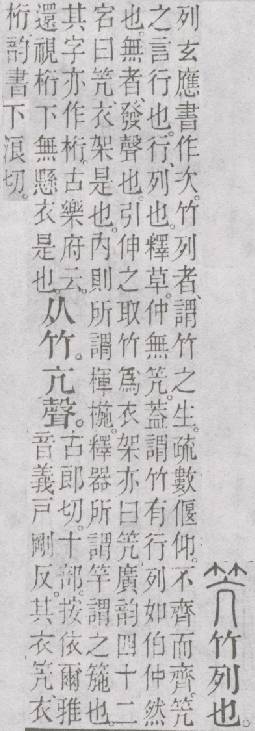 笐竹列也。
列玄應書作次。竹列者、謂竹之生。疏數偃仰。不齊而齊。笐
之言行也。行、列也。釋草。仲無笐。葢謂竹有行列如伯仲然
也。無者、發聲也。引伸之取竹爲衣架亦曰笐。廣韵四十二
宕曰笐衣架是也。內則所謂楎椸。釋器所謂竿謂之箷也。
其字亦作桁。古樂府云。
還視桁下無懸衣是也。
从竹。亢聲。
古郎切。十部。按依爾雅
音義戶剛反。其衣笐衣
桁韵書下浪切。